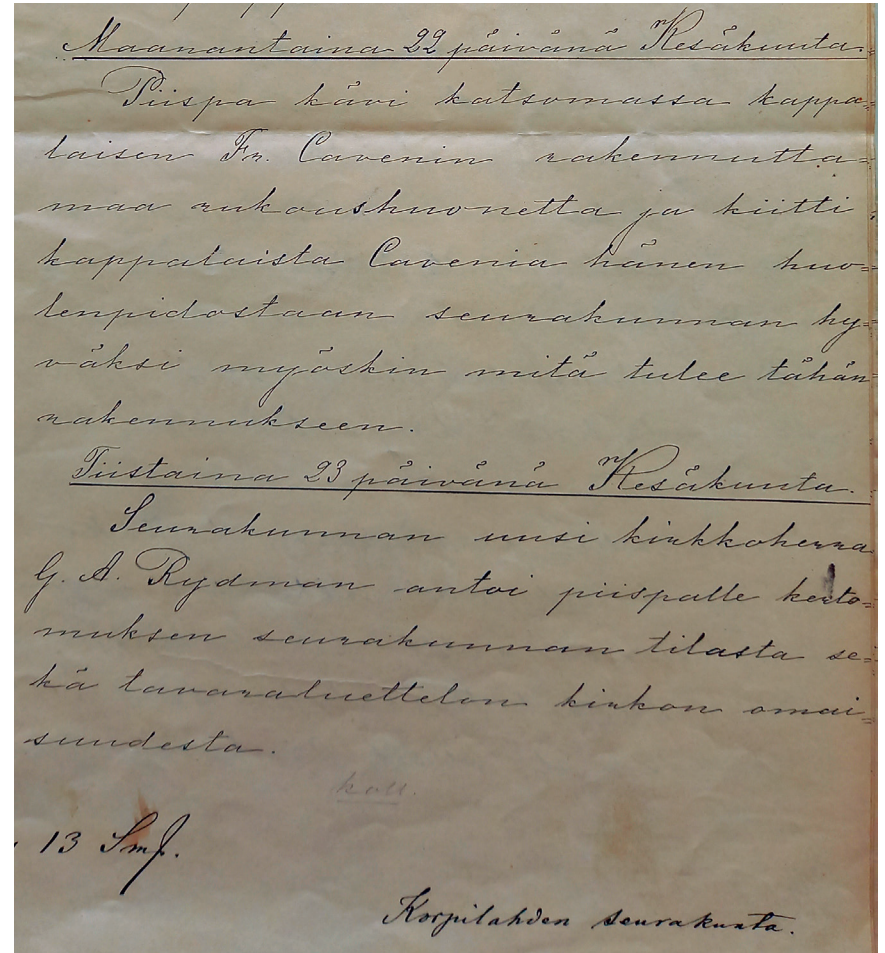 Maanantaina 22 päivänä Kesäkuuta.
Piispa kävi katsomassa kappa=
laisen Fr. Cavenin rakennutta=
maa rukoushuonetta ja kiitti
kappalaista Cavenia hänen huo=
lenpidostaan seurakunnan hy=
väksi myöskin mitä tulee tähän
rakennukseen.
Tiistaina 23 päivänä Kesäkuuta.
Seurakunnan uusi kirkkoherra
G. A. Rydman antoi piispalle kerto=
muksen seurakunnan tilasta se=
kä tavaraluettelon kirkon omai=
suudesta.
koll.
13 Smf.
Korpilahden seurakunta.